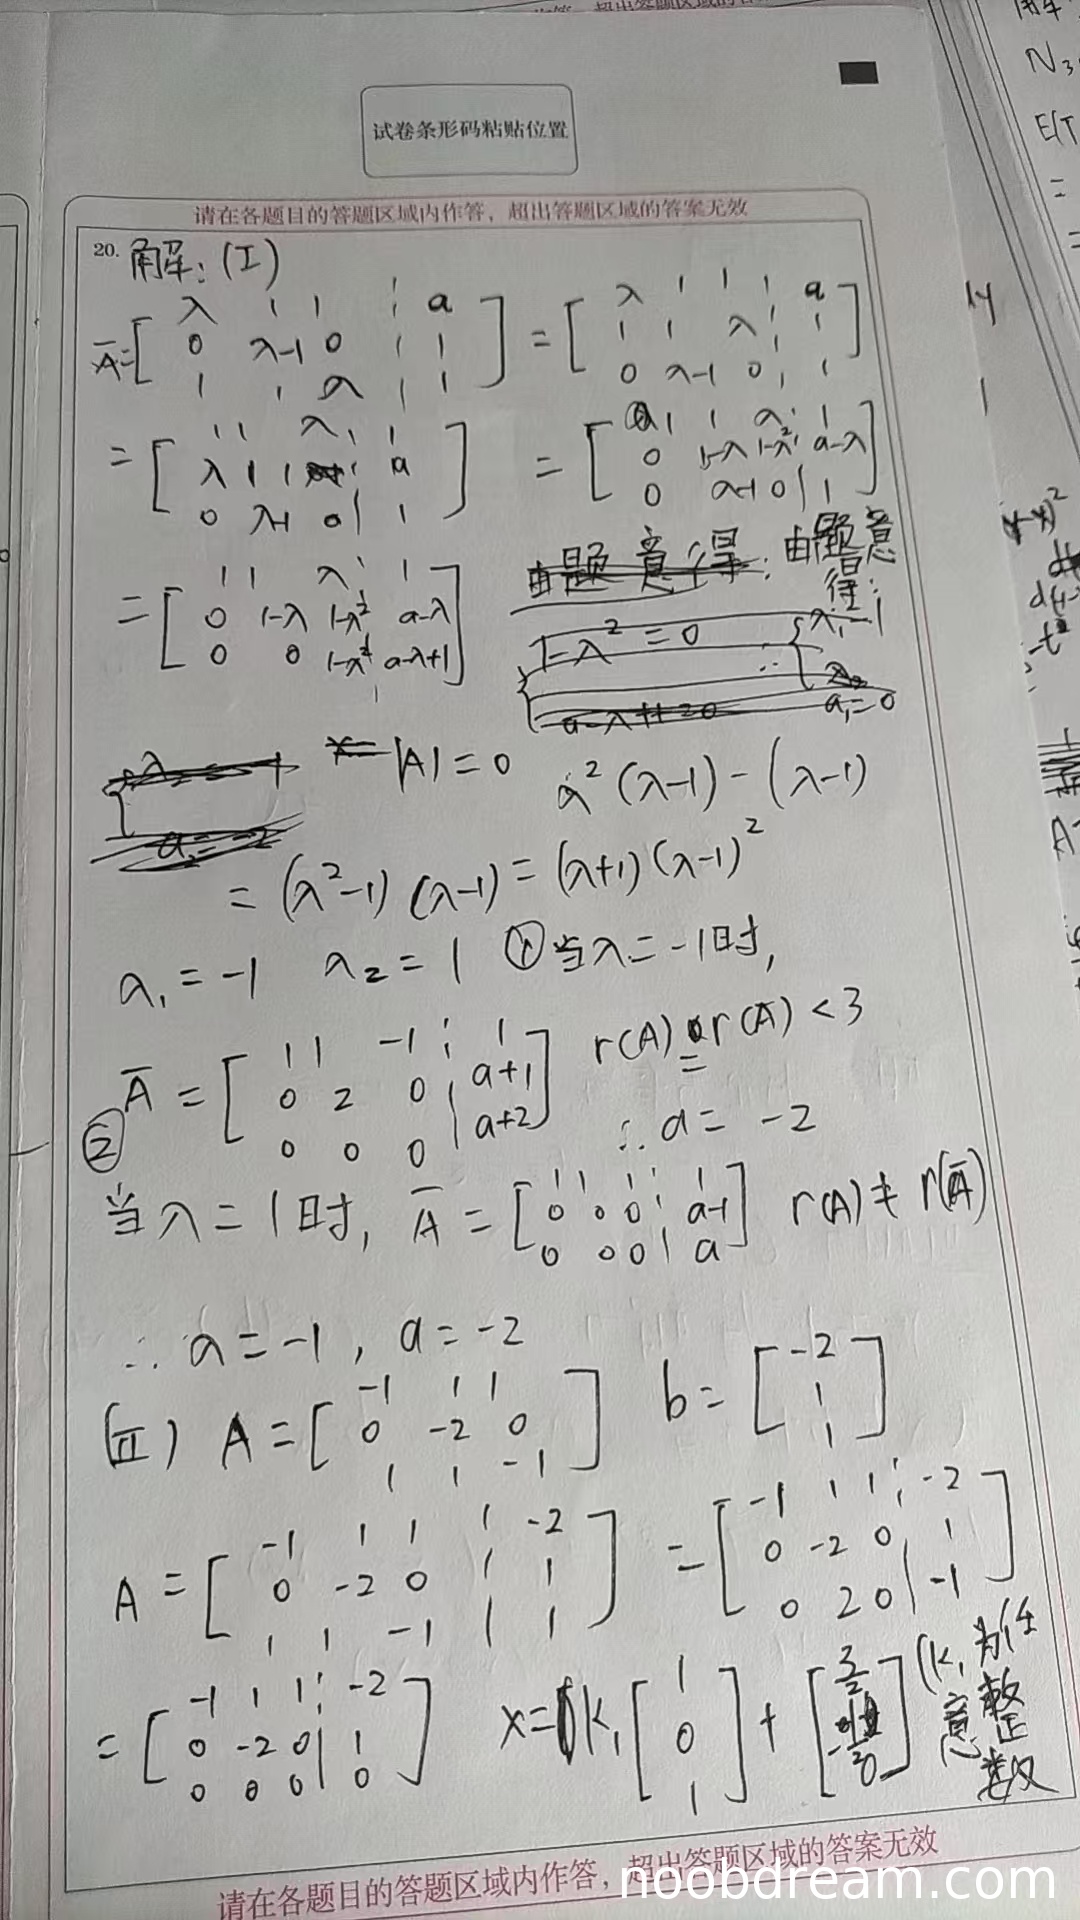 试卷条形码粘贴位置
请在各题目的答题区域内作答，超出答题区域的答案无效
20. 解:(I)
Ā=[λ 1 1 | a
0 λ-1 0 | 1
1 1 λ | 1] = [λ 1 1 | a
1 1 λ | 1
0 λ-1 0 | 1]
= [1 1 λ | 1
λ 1 1 | a
0 λ-1 0 | 1] = [1 1 λ | 1
0 1-λ 1-λ² | a-λ
0 λ-1 0 | 1]
= [1 1 λ | 1
0 1-λ 1-λ² | a-λ
0 0 1-λ² | a-λ+1]
由题意得: 由题意得:
1-λ²=0
a-λ+1=0
∴ {λ₁=1
a₁=0
|A|=0 λ²(λ-1)-(λ-1)
=(λ²-1)(λ-1)=(λ+1)(λ-1)²
λ₁=-1 λ₂=1 ①当λ=-1时,
Ā=[1 1 -1 | 1
0 2 0 | a+1
0 0 0 | a+2] r(A)=r(Ā)<3
∴a=-2
②
当λ=1时, Ā=[1 1 1 | 1
0 0 0 | a-1
0 0 0 | a] r(A)≠r(Ā)
∴λ=-1, a=-2
(II) A=[-1 1 1
0 -2 0
1 1 -1] b=[-2
1
1]
A=[-1 1 1 | -2
0 -2 0 | 1
1 1 -1 | 1] =[-1 1 1 | -2
0 -2 0 | 1
0 2 0 | -1]
=[-1 1 1 | -2
0 -2 0 | 1
0 0 0 | 0] x=k₁[1
0
1]+[3/2
-1/2
0] (k₁为任意整数
请在各题目的答题区域内作答，超出答题区域的答案无效
noobdream.com